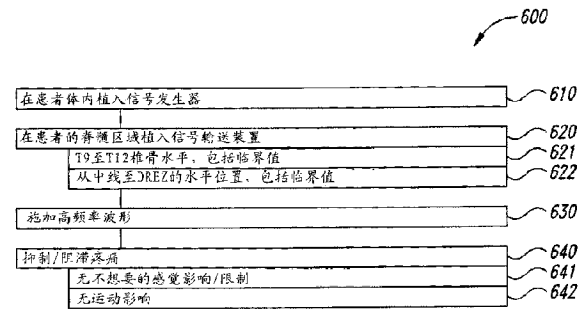 600
在患者体内植入信号发生器 610
在患者的脊髓区域植入信号输送装置 620
T9至T12椎骨水平、包括临界值 621
从中线至DREZ的水平位置、包括临界值 622
施加高频率波形 630
抑制/阻滞疼痛 640
无不想要的感觉影响/限制 641
无运动影响 642